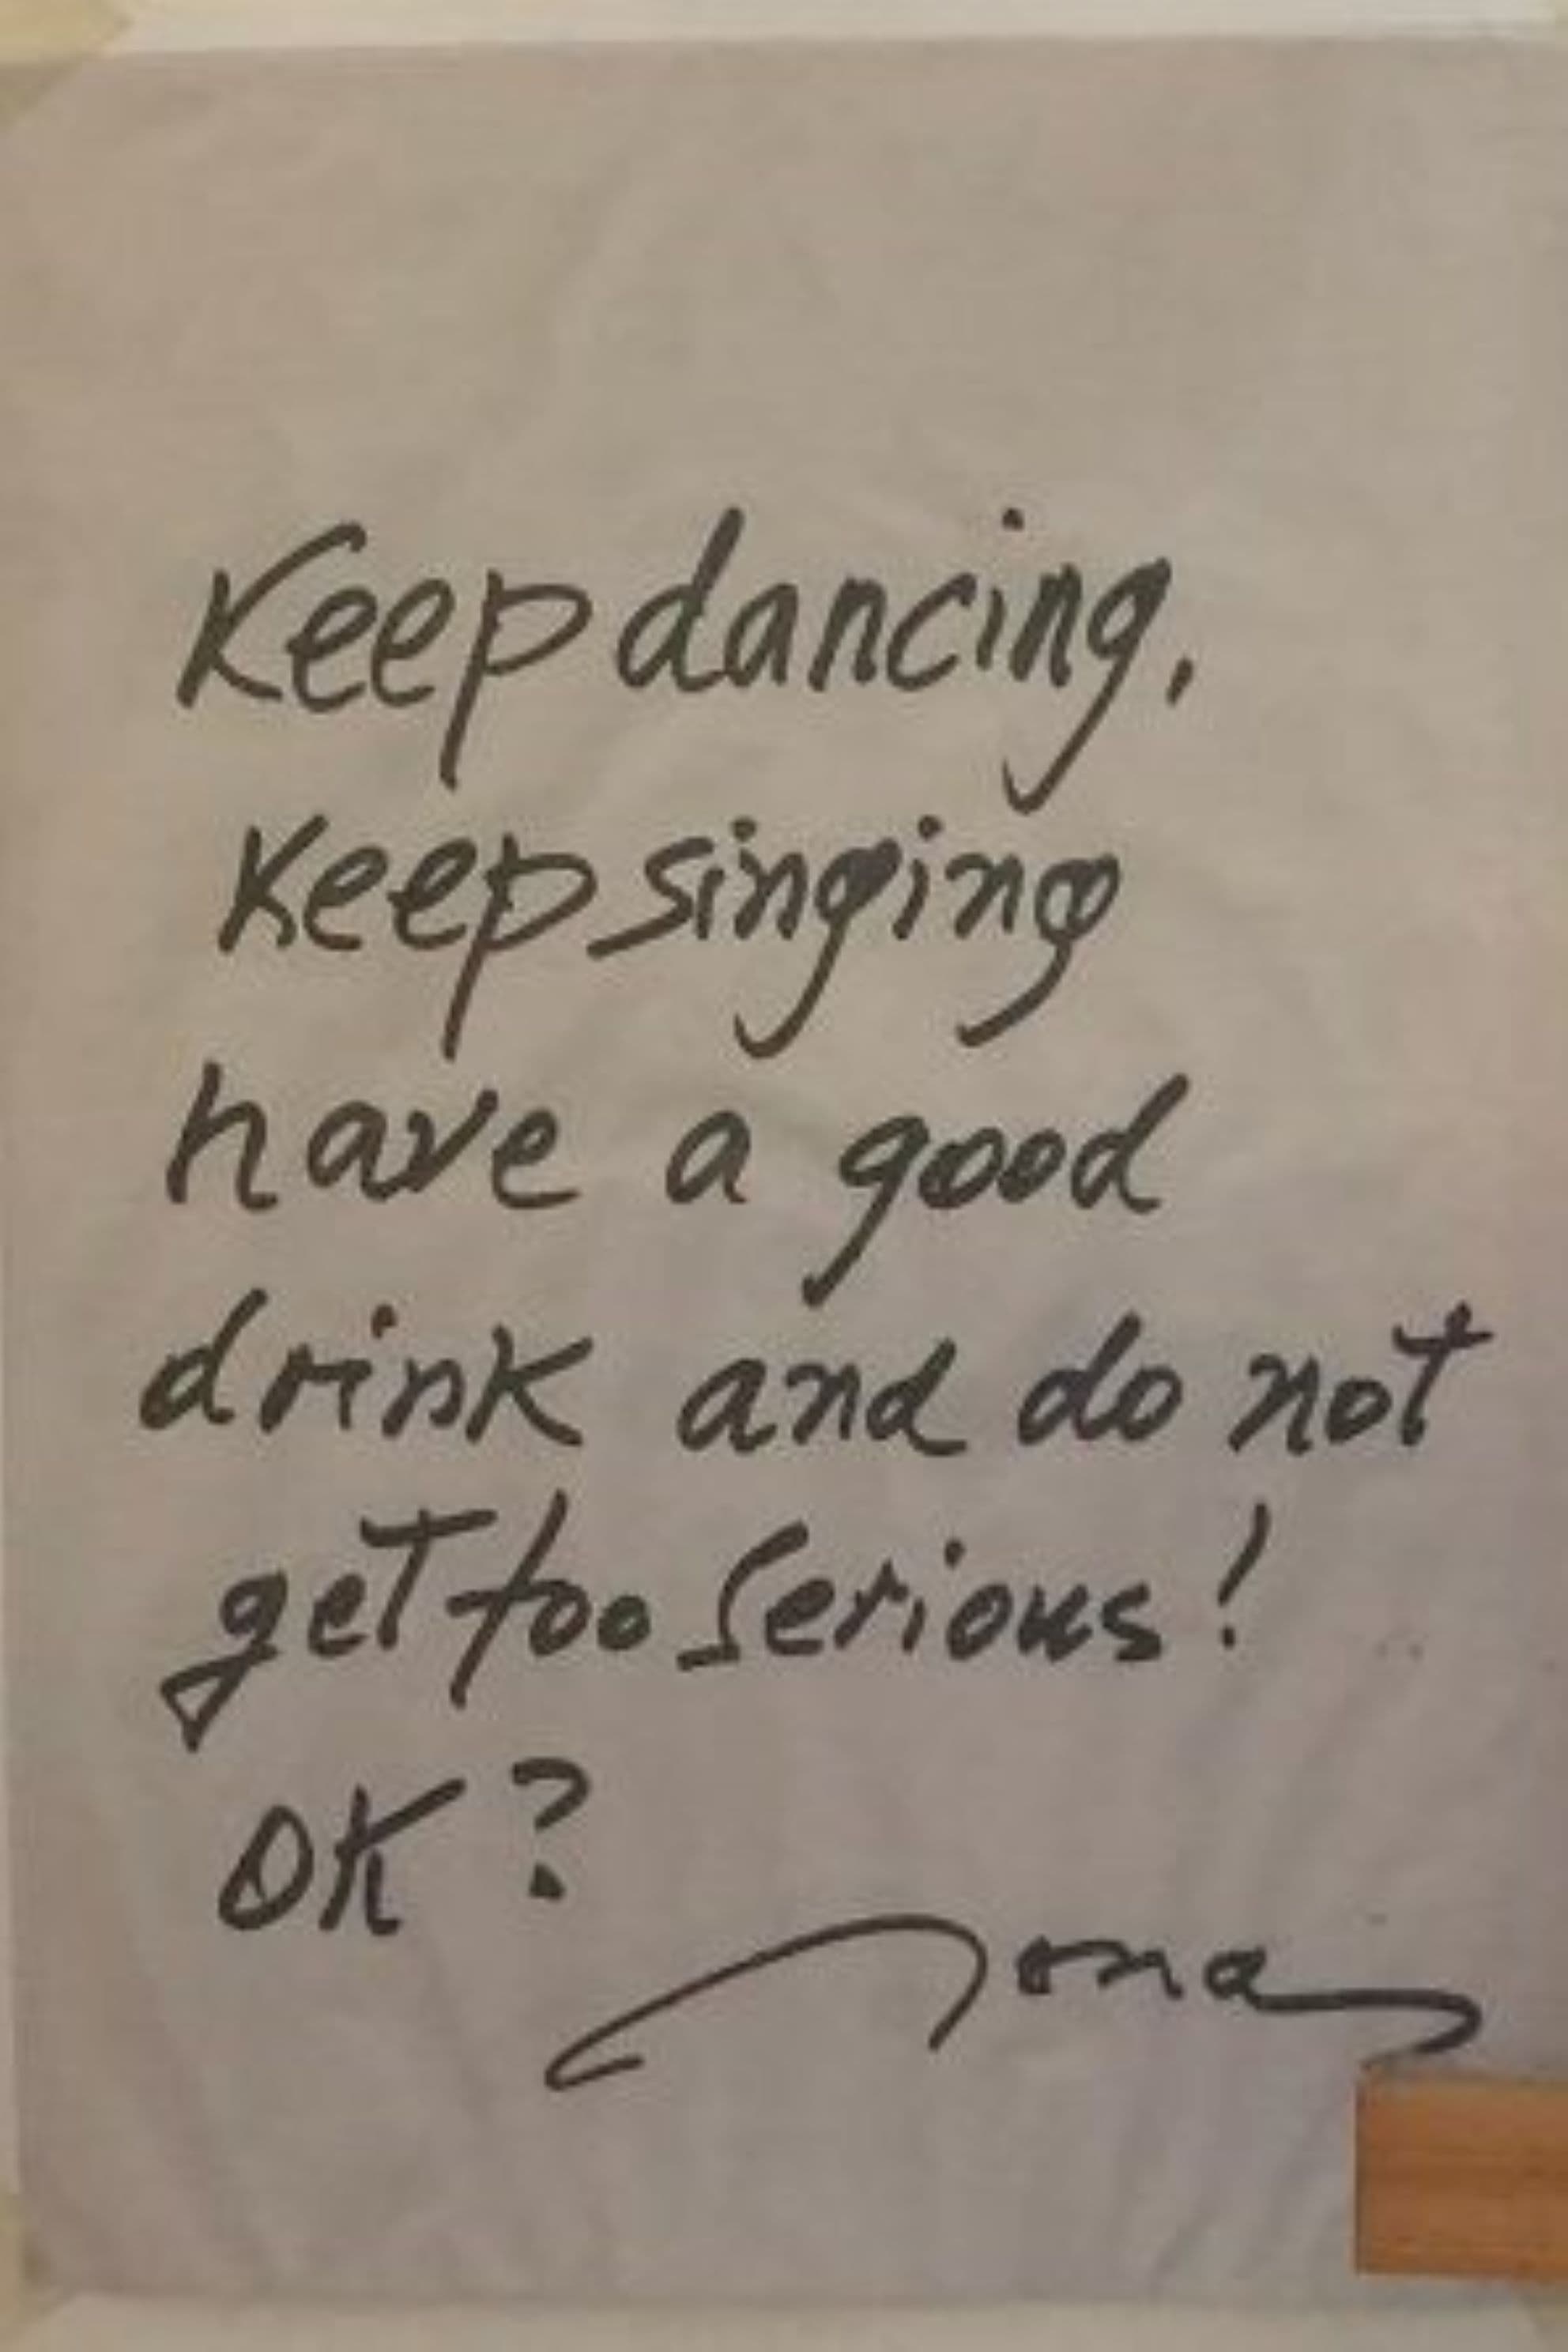 Keep dancing,
Keep singing
have a good
drink and do not
get too serious!
OK?
Jonas